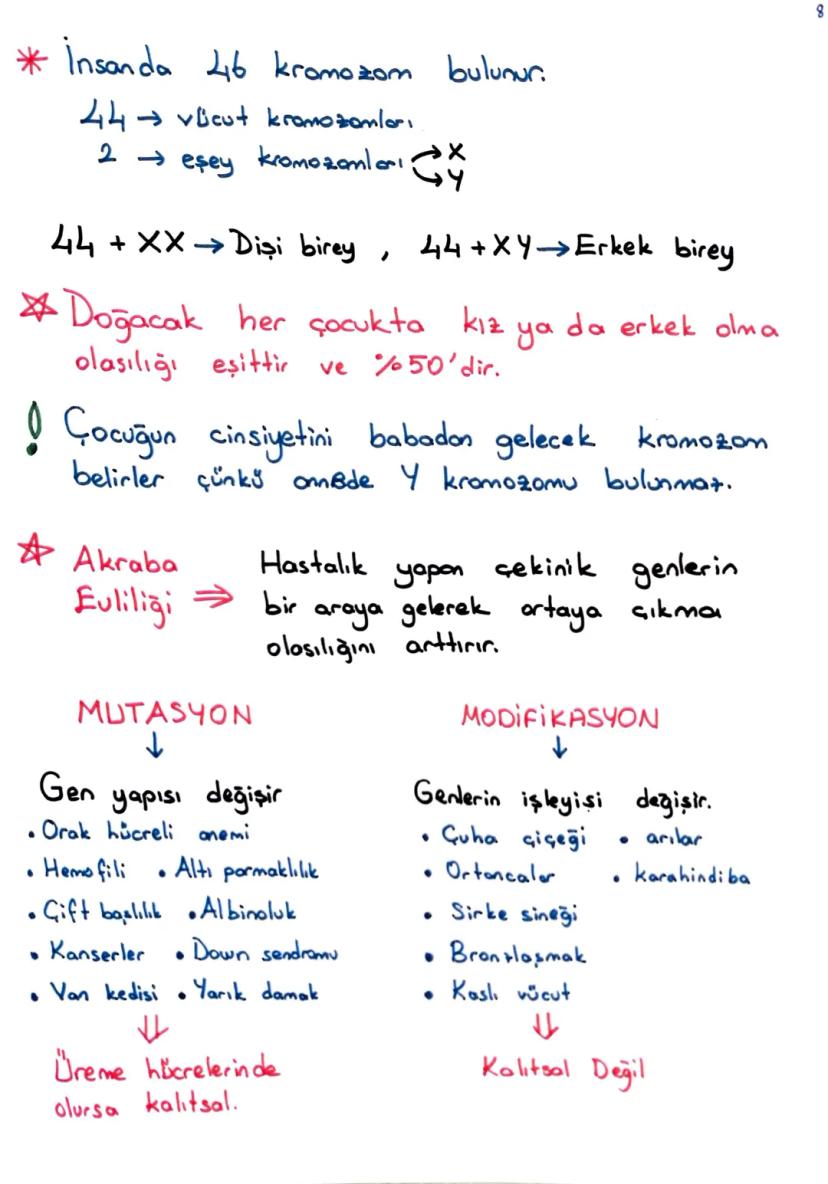 8
* İnsanda 46 kromozom bulunur.
44 → vücut kromozomları
2 → eşey kromozomları → X
→ Y
44 + XX → Dişi birey , 44 + XY → Erkek birey
☆ Doğacak her çocukta kız ya da erkek olma
olasılığı eşittir ve %50'dir.
! Çocuğun cinsiyetini babadan gelecek kromozom
belirler çünkü annede Y kromozomu bulunmaz.
☆ Akraba Evliliği ⇒ Hastalık yapan çekinik genlerin
bir araya gelerek ortaya çıkma
olasılığını arttırır.
MUTASYON
↓
Gen yapısı değişir
• Orak hücreli anemi
• Hemofili • Altı parmaklılık
• Çift başlılık • Albinoluk
• Kanserler • Down sendromu
• Van kedisi • Yarık damak
⇓
Üreme hücrelerinde
olursa kalıtsal.
MODİFİKASYON
↓
Genlerin işleyişi değişir.
• Çuha çiçeği • arılar
• Ortancalar • karahindiba
• Sirke sineği
• Bronzlaşmak
• Kaslı vücut
⇓
Kalıtsal Değil